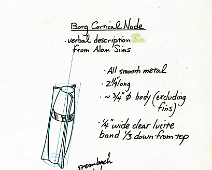 Borg Cortical Node
- verbal description
from Alan Sims
· All smooth metal
· 2¼" long
· ~ ¾" φ body (excluding
fins)
· ¼" wide clear lucite
band ⅓ down from top